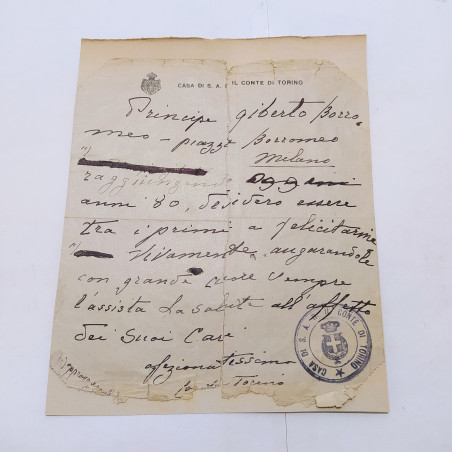 CASA DI S. A. IL CONTE DI TORINO
Principe Giberto Borro-
meo - piazza Borromeo
Milano
raggiungendo oggi
anni 80, desidero essere
tra i primi a felicitarmi
vivamente augurandole
con grande cuore sempre
l'assista la salute all'affetto
dei Suoi Cari
affezionatissimo
Torino
CASA DI S. A. IL CONTE DI TORINO